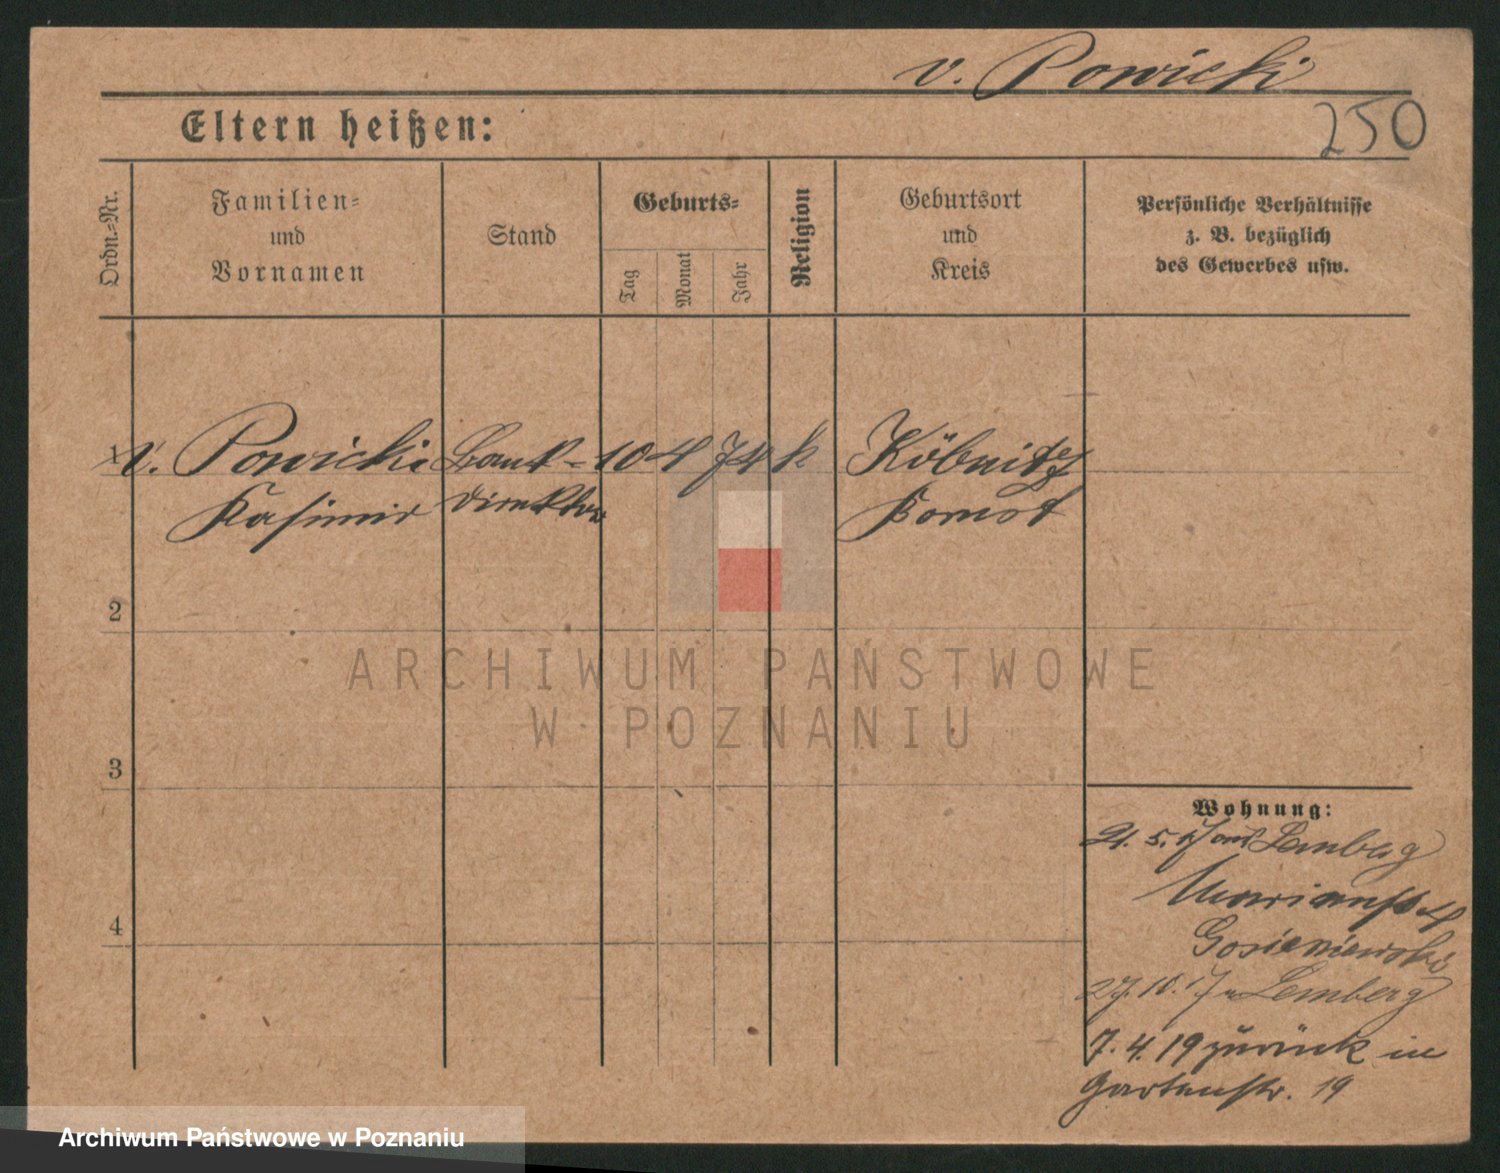 v. Powicki
250
Eltern heißen:
Ordn.-Nr.
Familien-
und
Vornamen
Stand
Geburts-
Tag
Monat
Jahr
Religion
Geburtsort
und
Kreis
Persönliche Verhältnisse
z. B. bezüglich
des Gewerbes usw.
1 v. Powicki Bank- 10 4 74 k Köbnitz
Kasimir direktor Bomst
2
3
4
Wohnung:
21. 5. 17 aus Lemberg
Marienstr. 4
Gosieniewski
27. 10. 17 n Lemberg
7. 4. 19 zurück in
Gartenstr. 19
ARCHIWUM PAŃSTWOWE
W POZNANIU
Archiwum Państwowe w Poznaniu